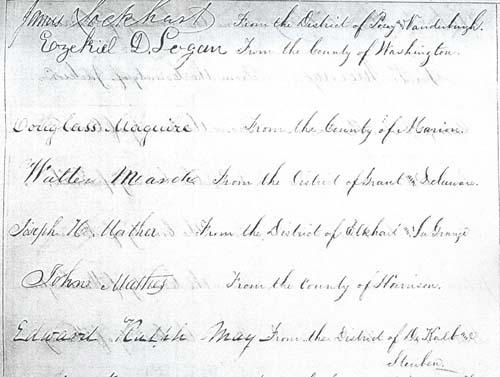 James Lockhart From the District of Posey and Vanderburgh.
Ezekiel D. Logan From the County of Washington.
Douglass Maguire From the County of Marion.
Walter March From the District of Grant and Delaware.
Joseph H. Mather From the District of Elkhart and La Grange
John Mathes From the County of Harrison.
Edward Ralph May From the District of De Kalb and
Steuben.